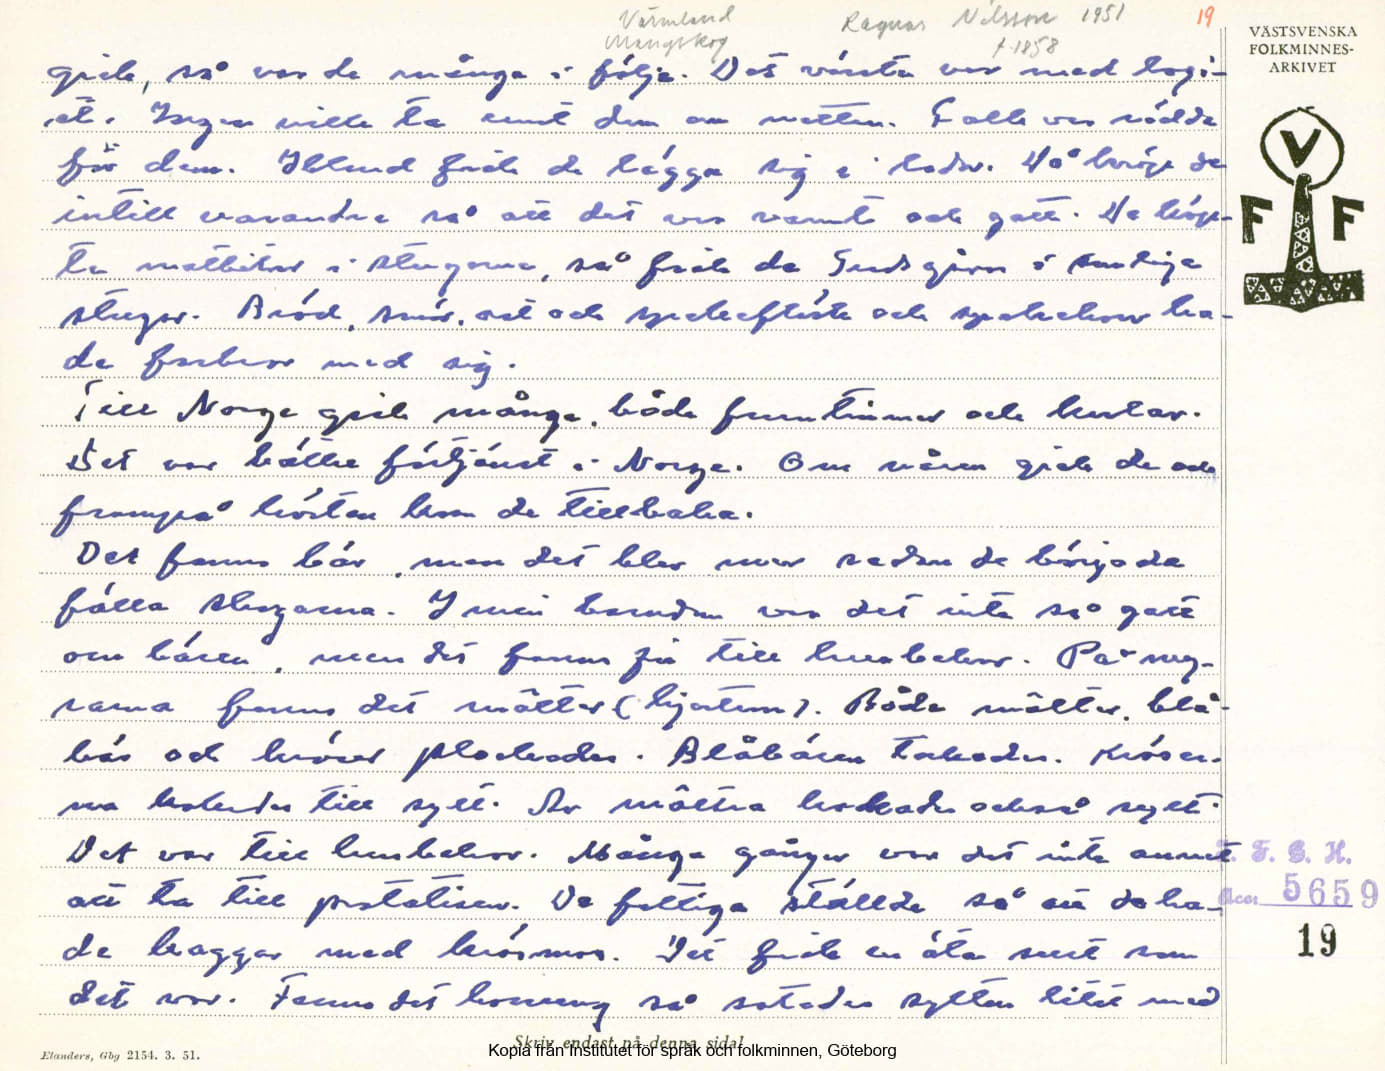 Värmland
Mangskog
Ragnar Nilsson 1951
f. 1858
19
VÄSTSVENSKA
FOLKMINNES-
ARKIVET
V
F F
gick, så var de många i följe. Det värsta var med logi-
et. Ingen ville ta emot dem om natten. Folk var rädda
för dem. Ibland fick de lägga sig i lador. Då kröp de
intill varandra så att det var varmt och gott. De köp-
te matbitar i stugorna, så fick de Guds gåva i
stugor. Bröd, smör, ost och och ha-
de med sig.
Till Norge gick många, både fruntimmer och karlar.
Det var bättre förtjänst i Norge. Om våren gick de och
frampå hösten kom de tillbaka.
Det fanns bär, men det blev mer sedan de började
fälla skogarna. I min barndom var det inte så gott
om bären, men det fanns ju till husbehov. På my-
rarna fanns det môlter (hjortron). Både môlter, blå-
bär och kröser plockades. Blåbären torkades. Kröser-
na kokades till sylt. Av môltra kokades också sylt.
Det var till husbehov. Många gånger var det inte annat
att ta till potatisen. De fattiga ställde så att de ha-
de baggar med krösmos. Det fick en äta surt som
det var. Fanns det honung så sötades sylten litet med
F. G. H.
Acc. 5659
19
Skriv endast på denna sida!
Elanders, Gbg 2154. 3. 51.
Kopia från Institutet för språk och folkminnen, Göteborg